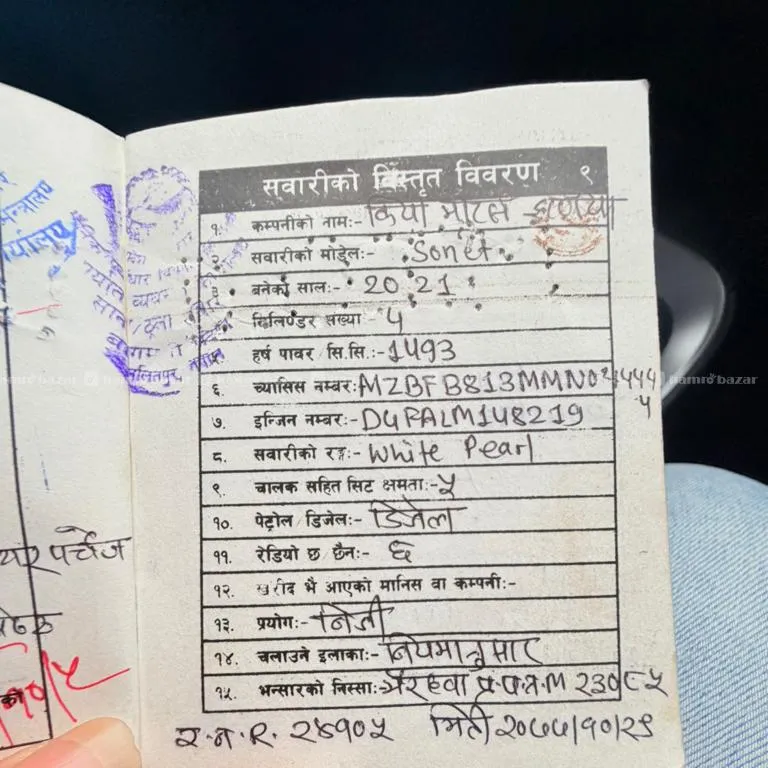 सवारीको विस्तृत विवरण ९
१. कम्पनीको नाम:- किया मोटर्स
२. सवारीको मोडेल:- Sonet
३. बनेको साल:- 2021
४. सिलिण्डर संख्या:- 4
५. हर्ष पावर/सि.सि.:- 1493
६. च्यासिस नम्बर: MZBFB813MMN
७. इन्जिन नम्बर:- D4FALM148219
८. सवारीको रङ्ग:- White Pearl
९. चालक सहित सिट क्षमता:- ५
१०. पेट्रोल/डिजेल:- डिजेल
११. रेडियो छ छैन:- छ
१२. खरीद भै आएको मानिस वा कम्पनी:-
१३. प्रयोग:- निजी
१४. चलाउने इलाका:- नियमानुसार
१५. भन्सारको निस्सा:- भैरहवा प्र.प.त्र.M
मिती
पर्चेज
hamrobazar